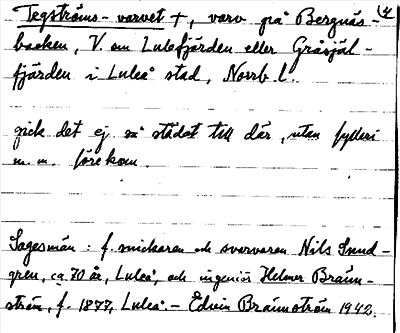 Tegströms-varvet †, varv på Bergnäs- (4
backen, V. om Lulefjärden eller Gråsjäl-
fjärden i Luleå stad, Norrb. l.
gick det ej så städat till där, utan fylleri
m. m. förekom.
Sagesmän: f. snickaren och svarvaren Nils Sund-
gren, ca 70 år, Luleå, och ingeniör Helmer Bränn-
ström, f. 1877, Luleå. - Edvin Brännström 1942.